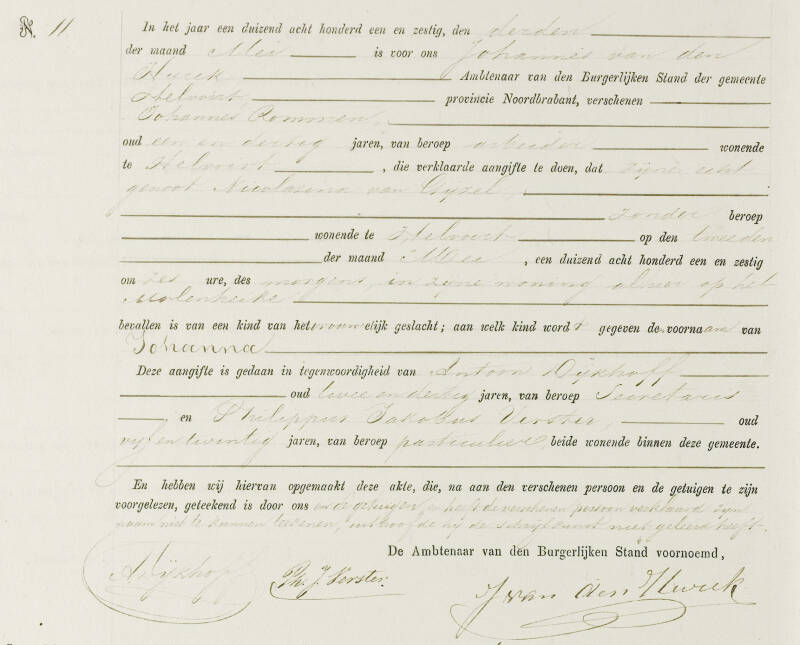 N. 11
In het jaar een duizend acht honderd een en zestig, den derden
der maand Mei is voor ons Johannes van den
Hurk Ambtenaar van den Burgerlijken Stand der gemeente
Helvoirt, provincie Noordbrabant, verschenen
Johannes Rommen,
oud een en dertig jaren, van beroep arbeider wonende
te Helvoirt, die verklaarde aangifte te doen, dat zijne echt
genoot Nicolasina van Gyzel
zonder beroep
wonende te Helvoirt op den tweeden
der maand Mei, een duizend acht honderd een en zestig
om zes ure, des morgens, in zijne woning alhier op het
Molenheike
bevallen is van een kind van het vrouwelijk geslacht; aan welk kind wordt gegeven de voornaam van
Johanna
Deze aangifte is gedaan in tegenwoordigheid van Antoon Dijkhoff
oud twee en dertig jaren, van beroep Secretaris
en Philippus Jakobus Verster, oud
vijf en twintig jaren, van beroep particulier, beide wonende binnen deze gemeente.
En hebben wij hiervan opgemaakt deze akte, die, na aan den verschenen persoon en de getuigen te zijn
voorgelezen, geteekend is door ons en de getuigen, en heeft de verschenen persoon verklaard zijn
naam niet te kunnen teekenen, uit hoofde hij de schrijfkunst niet geleerd heeft.
De Ambtenaar van den Burgerlijken Stand voornoemd,
A Dijkhoff Ph. J. Verster. J van den Hurk